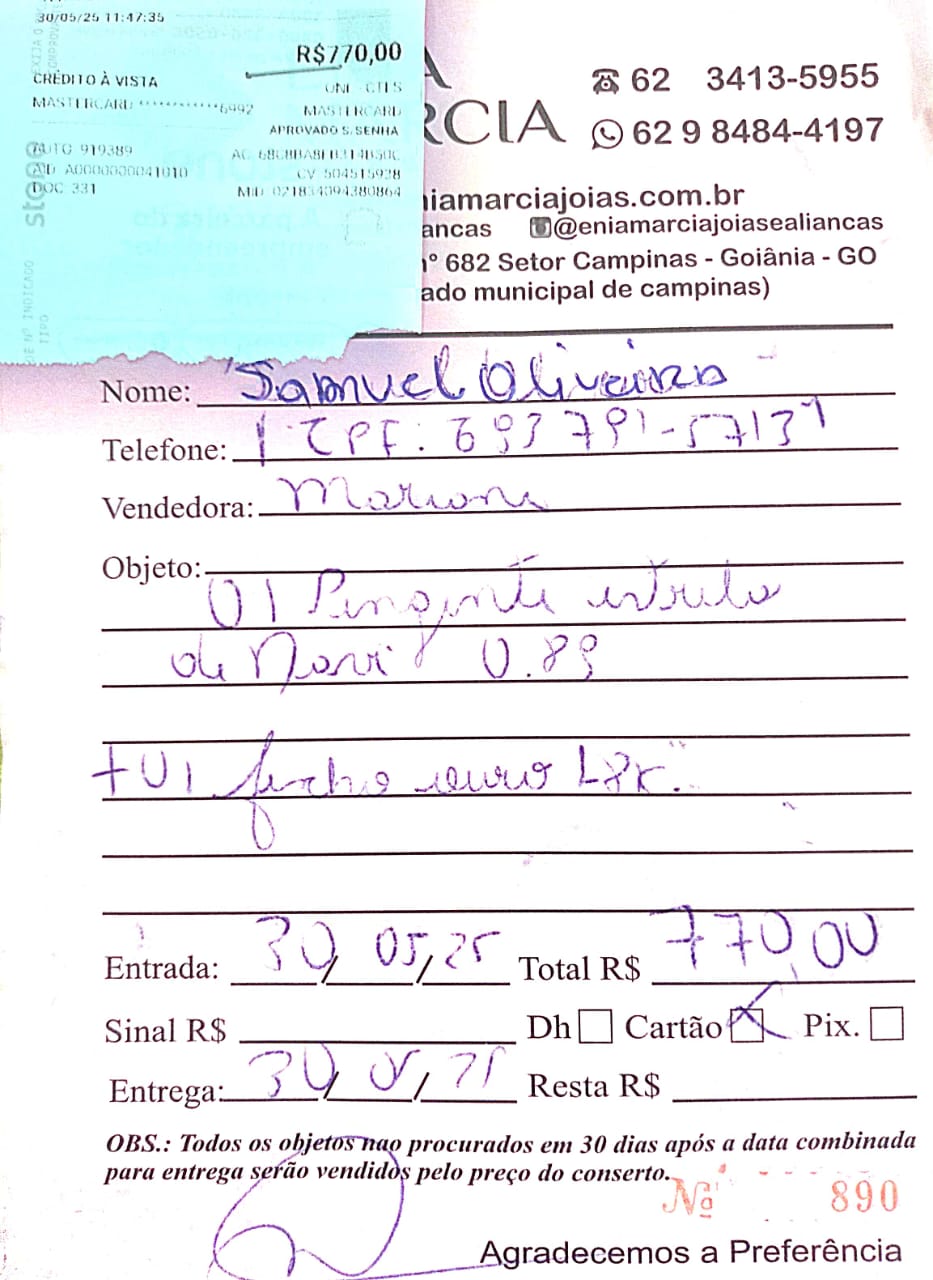 30/05/25 11:47:35
R$770,00
CRÉDITO À VISTA
ONL-CTLS
MASTERCARD ************6992
MASTERCARD
APROVADO S. SENHA
AUTO 919389
AID A0000000041010
CV 504515928
DOC 331
MID 021834094380864
stone
A
RCIA
62 3413-5955
62 9 8484-4197
niamarciajoias.com.br
ancas @eniamarciajoiasealiancas
nº 682 Setor Campinas - Goiânia - GO
ado municipal de campinas)
Nome: Samuel Oliveira
Telefone: CPF: 693 791-57131
Vendedora: Mariane
Objeto:
01 Pingente estrela
de Davi 0.89
+ 01 fecho ouro 18K.
Entrada: 30/05/25 Total R$ 770,00
Sinal R$ Dh Cartão X Pix.
Entrega: 30/05/25 Resta R$
OBS.: Todos os objetos nao procurados em 30 dias após a data combinada
para entrega serão vendidos pelo preço do conserto.
Nº 890
Agradecemos a Preferência